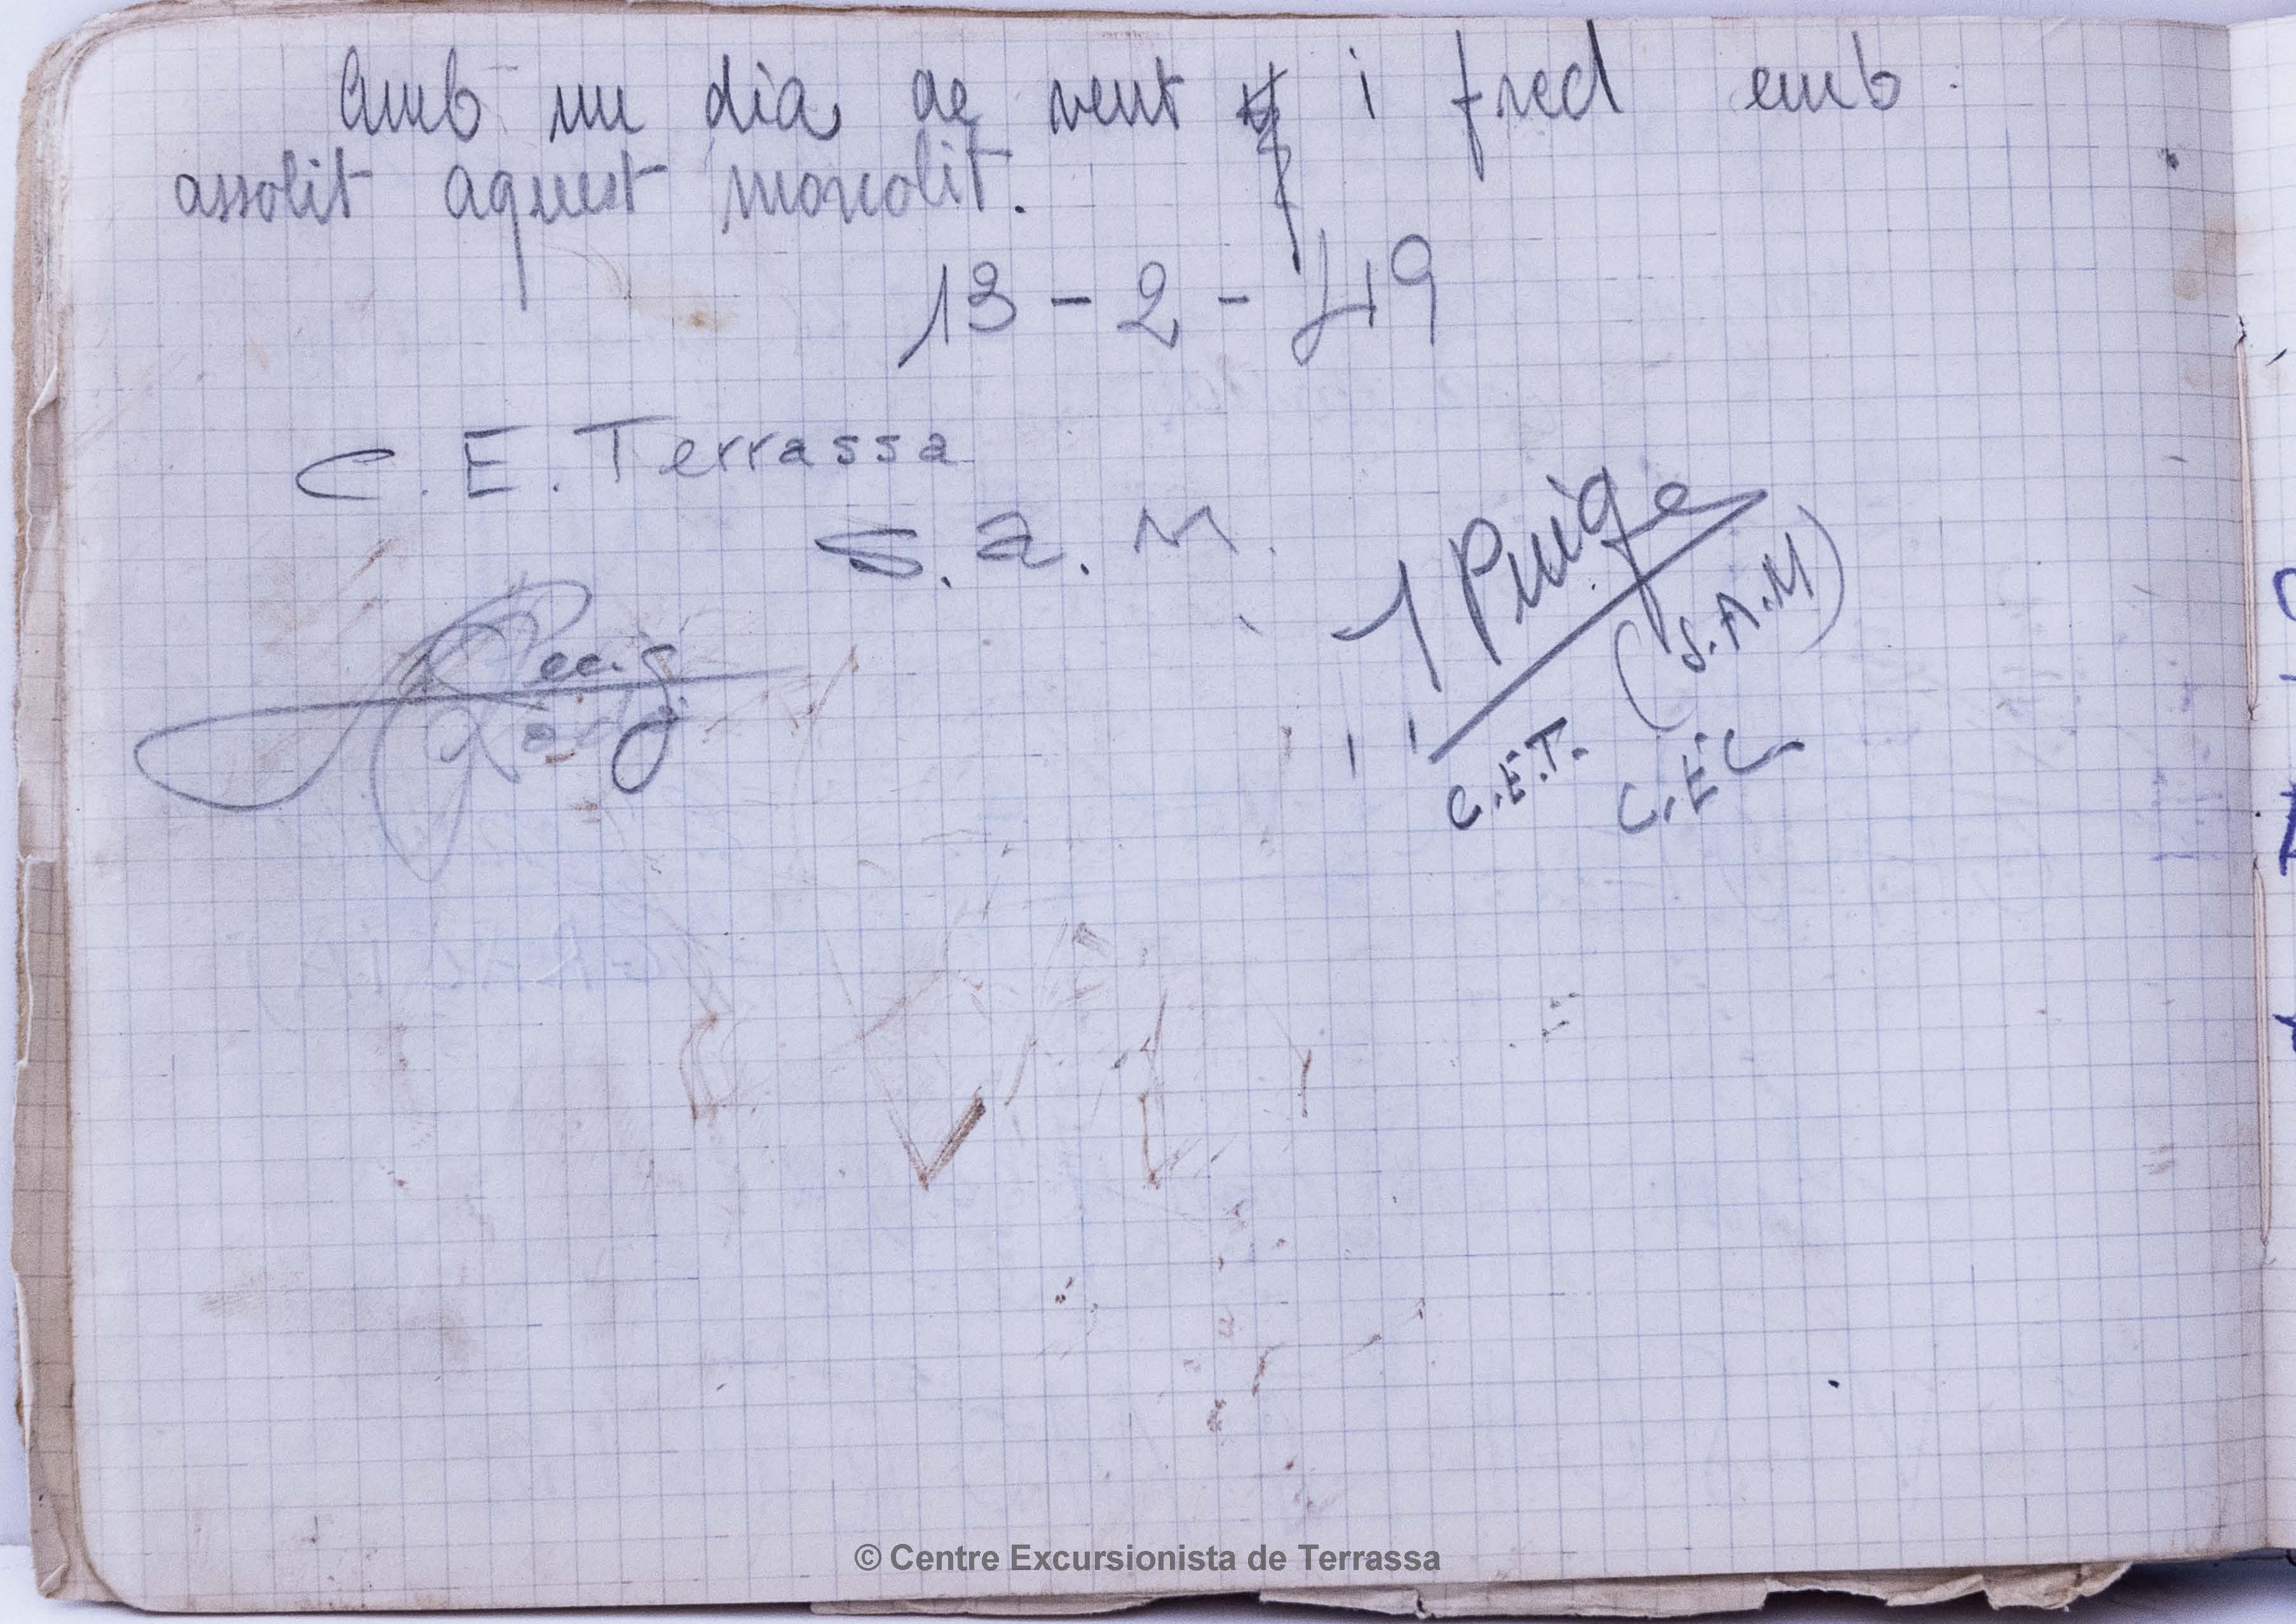 Amb un dia de vent i fred emb
assolit aquest monolit.
13-2-49
C.E. Terrassa
S.a.M.
J Puig
(S.A.M)
C.E.T.
C.E.C
© Centre Excursionista de Terrassa